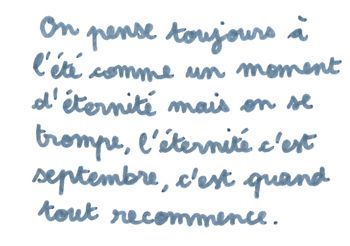 On pense toujours à
l'été comme un moment
d'éternité mais on se
trompe, l'éternité c'est
septembre, c'est quand
tout recommence.